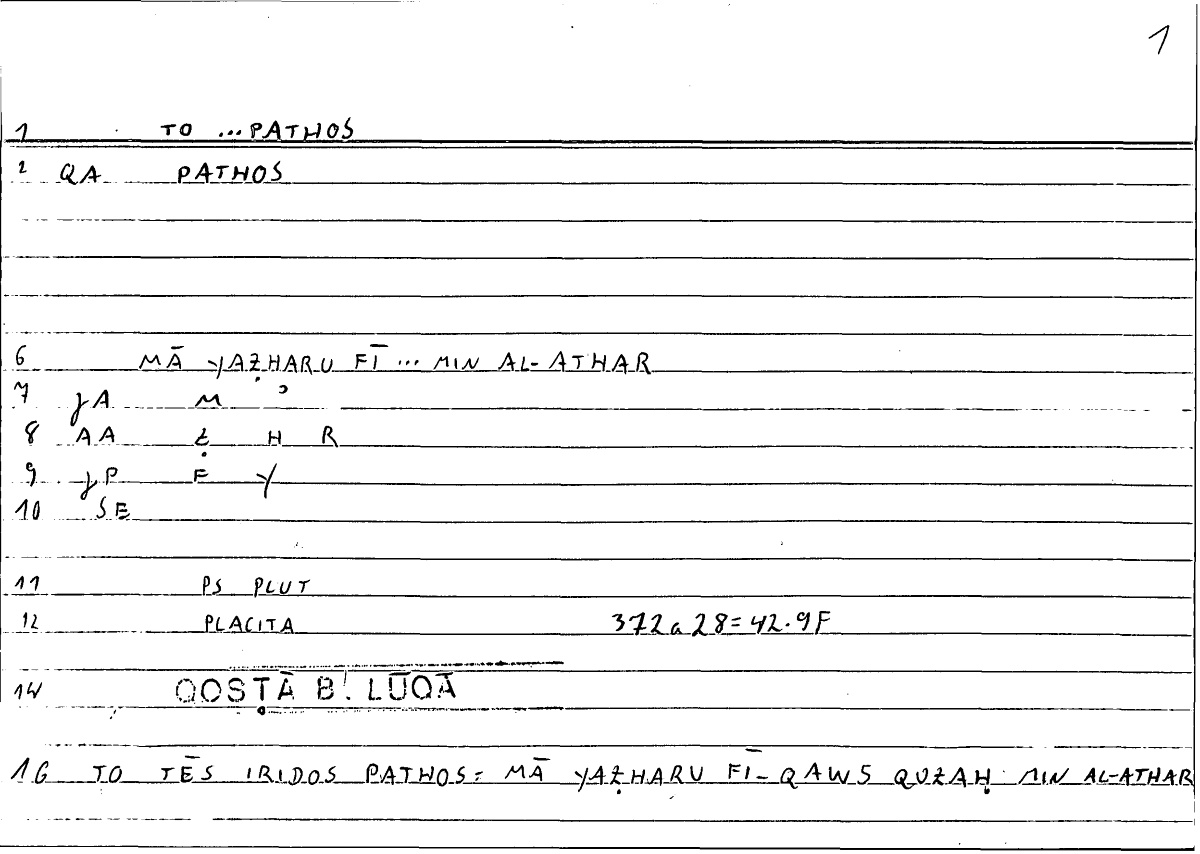 1
1 TO ...PATHOS
2 QA PATHOS
6 MĀ YAẒHARU FĪ ... MIN AL-ATHAR
7 ȷA M ʾ
8 AA Ẓ H R
9 ȷP F Y
10 SE
11 PS PLUT
12 PLACITA 372a28=42.9F
14 QOSṬĀ B. LŪQĀ
16 TO TĒS IRIDOS PATHOS= MĀ YAẒHARU FĪ- QAWS QUZAḤ MIN AL-ATHAR